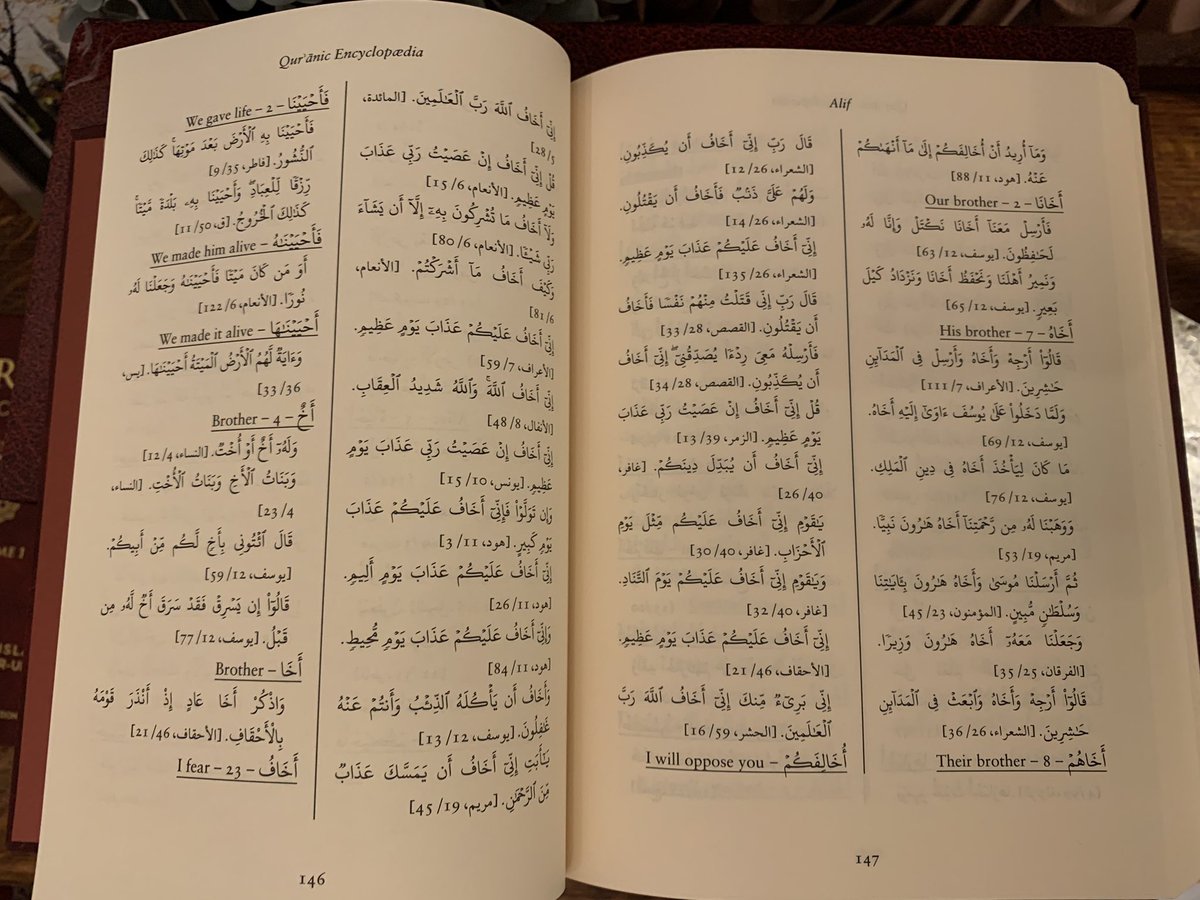 Qurʾānic Encyclopædia
We gave life – 2 – فَأَحۡيَيۡنَا
فَأَحۡيَيۡنَا بِهِ ٱلۡأَرۡضَ بَعۡدَ مَوۡتِهَاۚ كَذَٰلِكَ
ٱلنُّشُورُ. [فاطر، 9/35]
رِّزۡقٗا لِّلۡعِبَادِۖ وَأَحۡيَيۡنَا بِهِۦ بَلۡدَةٗ مَّيۡتٗاۚ
كَذَٰلِكَ ٱلۡخُرُوجُ. [ق، 11/50]
We made him alive – فَأَحۡيَيۡنَٰهُ
أَوَ مَن كَانَ مَيۡتٗا فَأَحۡيَيۡنَٰهُ وَجَعَلۡنَا لَهُۥ
نُورٗا. [الأنعام، 122/6]
We made it alive – أَحۡيَيۡنَٰهَا
وَءَايَةٞ لَّهُمُ ٱلۡأَرۡضُ ٱلۡمَيۡتَةُ أَحۡيَيۡنَٰهَا. [يس،
33/36]
Brother – 4 – أَخٌ
وَلَهُۥٓ أَخٌ أَوۡ أُخۡتٞ. [النساء، 12/4]
وَبَنَاتُ ٱلۡأَخِ وَبَنَاتُ ٱلۡأُخۡتِ. [النساء،
23/4]
قَالَ ٱئۡتُونِي بِأَخٖ لَّكُم مِّنۡ أَبِيكُمۡ.
[يوسف، 59/12]
قَالُوٓاْ إِن يَسۡرِقۡ فَقَدۡ سَرَقَ أَخٞ لَّهُۥ مِن
قَبۡلُ. [يوسف، 77/12]
Brother – أَخَا
وَٱذۡكُرۡ أَخَا عَادٍ إِذۡ أَنذَرَ قَوۡمَهُۥ
بِٱلۡأَحۡقَافِ. [الأحقاف، 21/46]
I fear – 23 – أَخَافُ
إِنِّيٓ أَخَافُ ٱللَّهَ رَبَّ ٱلۡعَٰلَمِينَ. [المائدة،
28/5]
قُلۡ إِنِّيٓ أَخَافُ إِنۡ عَصَيۡتُ رَبِّي عَذَابَ
يَوۡمٍ عَظِيمٖ. [الأنعام، 15/6]
وَلَآ أَخَافُ مَا تُشۡرِكُونَ بِهِۦٓ إِلَّآ أَن يَشَآءَ
رَبِّي شَيۡـٔٗا. [الأنعام، 80/6]
وَكَيۡفَ أَخَافُ مَآ أَشۡرَكۡتُمۡ. [الأنعام،
81/6]
إِنِّيٓ أَخَافُ عَلَيۡكُمۡ عَذَابَ يَوۡمٍ عَظِيمٖ.
[الأعراف، 59/7]
إِنِّيٓ أَخَافُ ٱللَّهَۚ وَٱللَّهُ شَدِيدُ ٱلۡعِقَابِ.
[الأنفال، 48/8]
إِنِّيٓ أَخَافُ إِنۡ عَصَيۡتُ رَبِّي عَذَابَ يَوۡمٍ
عَظِيمٖ. [يونس، 15/10]
وَإِن تَوَلَّوۡاْ فَإِنِّيٓ أَخَافُ عَلَيۡكُمۡ عَذَابَ
يَوۡمٖ كَبِيرٍ. [هود، 3/11]
إِنِّيٓ أَخَافُ عَلَيۡكُمۡ عَذَابَ يَوۡمٍ أَلِيمٖ.
[هود، 26/11]
وَإِنِّيٓ أَخَافُ عَلَيۡكُمۡ عَذَابَ يَوۡمٖ مُّحِيطٖ.
[هود، 84/11]
وَأَخَافُ أَن يَأۡكُلَهُ ٱلذِّئۡبُ وَأَنتُمۡ عَنۡهُ
غَٰفِلُونَ. [يوسف، 13/12]
يَٰٓأَبَتِ إِنِّيٓ أَخَافُ أَن يَمَسَّكَ عَذَابٞ
مِّنَ ٱلرَّحۡمَٰنِ. [مريم، 45/19]
146
Alif
قَالَ رَبِّ إِنِّيٓ أَخَافُ أَن يُكَذِّبُونِ.
[الشعراء، 12/26]
وَلَهُمۡ عَلَيَّ ذَنۢبٞ فَأَخَافُ أَن يَقۡتُلُونِ.
[الشعراء، 14/26]
إِنِّيٓ أَخَافُ عَلَيۡكُمۡ عَذَابَ يَوۡمٍ عَظِيمٖ.
[الشعراء، 135/26]
قَالَ رَبِّ إِنِّي قَتَلۡتُ مِنۡهُمۡ نَفۡسٗا فَأَخَافُ
أَن يَقۡتُلُونِ. [القصص، 33/28]
فَأَرۡسِلۡهُ مَعِيَ رِدۡءٗا يُصَدِّقُنِيٓۖ إِنِّيٓ أَخَافُ
أَن يُكَذِّبُونِ. [القصص، 34/28]
قُلۡ إِنِّيٓ أَخَافُ إِنۡ عَصَيۡتُ رَبِّي عَذَابَ
يَوۡمٍ عَظِيمٖ. [الزمر، 13/39]
إِنِّيٓ أَخَافُ أَن يُبَدِّلَ دِينَكُمۡ. [غافر،
26/40]
يَٰقَوۡمِ إِنِّيٓ أَخَافُ عَلَيۡكُم مِّثۡلَ يَوۡمِ
ٱلۡأَحۡزَابِ. [غافر، 30/40]
وَيَٰقَوۡمِ إِنِّيٓ أَخَافُ عَلَيۡكُمۡ يَوۡمَ ٱلتَّنَادِ.
[غافر، 32/40]
إِنِّيٓ أَخَافُ عَلَيۡكُمۡ عَذَابَ يَوۡمٍ عَظِيمٖ.
[الأحقاف، 21/46]
إِنِّي بَرِيٓءٞ مِّنكَ إِنِّيٓ أَخَافُ ٱللَّهَ رَبَّ
ٱلۡعَٰلَمِينَ. [الحشر، 16/59]
I will oppose you – أُخَالِفَكُمۡ
وَمَآ أُرِيدُ أَنۡ أُخَالِفَكُمۡ إِلَىٰ مَآ أَنۡهَىٰكُمۡ
عَنۡهُ. [هود، 88/11]
Our brother – 2 – أَخَانَا
فَأَرۡسِلۡ مَعَنَآ أَخَانَا نَكۡتَلۡ وَإِنَّا لَهُۥ
لَحَٰفِظُونَ. [يوسف، 63/12]
وَنَمِيرُ أَهۡلَنَا وَنَحۡفَظُ أَخَانَا وَنَزۡدَادُ كَيۡلَ
بَعِيرٖ. [يوسف، 65/12]
His brother – 7 – أَخَاهُ
قَالُوٓاْ أَرۡجِهۡ وَأَخَاهُ وَأَرۡسِلۡ فِي ٱلۡمَدَآئِنِ
حَٰشِرِينَ. [الأعراف، 111/7]
وَلَمَّا دَخَلُواْ عَلَىٰ يُوسُفَ ءَاوَىٰٓ إِلَيۡهِ أَخَاهُ.
[يوسف، 69/12]
مَا كَانَ لِيَأۡخُذَ أَخَاهُ فِي دِينِ ٱلۡمَلِكِ.
[يوسف، 76/12]
وَوَهَبۡنَا لَهُۥ مِن رَّحۡمَتِنَآ أَخَاهُ هَٰرُونَ نَبِيّٗا.
[مريم، 53/19]
ثُمَّ أَرۡسَلۡنَا مُوسَىٰ وَأَخَاهُ هَٰرُونَ بِـَٔايَٰتِنَا
وَسُلۡطَٰنٖ مُّبِينٍ. [المؤمنون، 45/23]
وَجَعَلۡنَا مَعَهُۥٓ أَخَاهُ هَٰرُونَ وَزِيرٗا.
[الفرقان، 35/25]
قَالُوٓاْ أَرۡجِهۡ وَأَخَاهُ وَٱبۡعَثۡ فِي ٱلۡمَدَآئِنِ
حَٰشِرِينَ. [الشعراء، 36/26]
Their brother – 8 – أَخَاهُمۡ
147